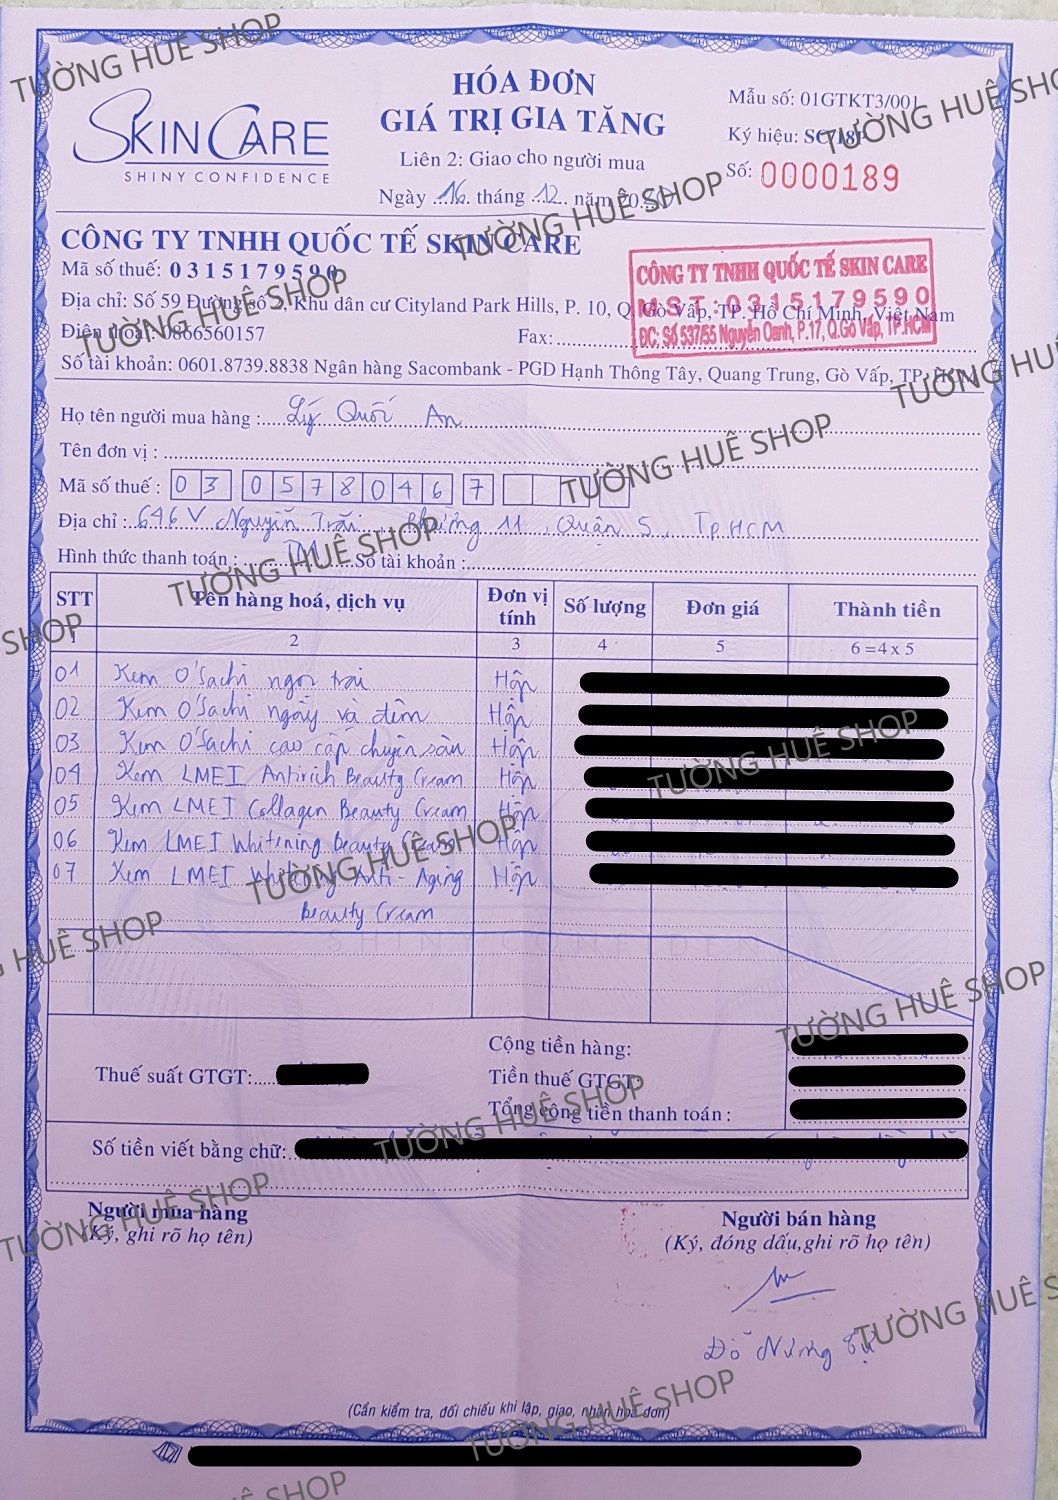 TƯỜNG HUÊ SHOP
HÓA ĐƠN
GIÁ TRỊ GIA TĂNG
Liên 2: Giao cho người mua
Ngày ...16... tháng ...12... năm 20
SKINCARE
SHINY CONFIDENCE
Mẫu số: 01GTKT3/001
Ký hiệu: SC/18P
Số: 0000189
TƯỜNG HUÊ SHOP
TƯỜNG HUÊ SHOP
CÔNG TY TNHH QUỐC TẾ SKIN CARE
Mã số thuế: 0315179590
Địa chỉ: Số 59 Đường số 2, Khu dân cư Cityland Park Hills, P. 10, Q. Gò Vấp, TP. Hồ Chí Minh, Việt Nam
Điện thoại: 0866560157 Fax:
Số tài khoản: 0601.8739.8838 Ngân hàng Sacombank - PGD Hạnh Thông Tây, Quang Trung, Gò Vấp, TP. HCM
CÔNG TY TNHH QUỐC TẾ SKIN CARE
M.S.T: 0315179590
ĐC: Số 537/55 Nguyễn Oanh, P.17, Q.Gò Vấp, TP.HCM
TƯỜNG HUÊ SHOP
TƯỜNG HUÊ
Họ tên người mua hàng : Lý Quốc An
Tên đơn vị :
Mã số thuế : 03 0578046 7
Địa chỉ : 646 V Nguyễn Trãi, Phường 11, Quận 5, TP HCM
Hình thức thanh toán : TM Số tài khoản :
TƯỜNG HUÊ SHOP
TƯỜNG HUÊ SHOP
SHOP
STT Tên hàng hoá, dịch vụ Đơn vị tính Số lượng Đơn giá Thành tiền
1 2 3 4 5 6 =4 x 5
01 Kem O'Sachi ngọc trai Hộp
02 Kem O'Sachi ngày và đêm Hộp
03 Kem O'Sachi cao cấp chuyên sâu Hộp
04 Kem LMEI Antirich Beauty Cream Hộp
05 Kem LMEI Collagen Beauty Cream Hộp
06 Kem LMEI Whitening beauty Cream Hộp
07 Kem LMEI Whitening Anti - Aging Hộp
beauty Cream
TƯỜNG HUÊ SHOP
TƯỜNG HUÊ SHOP
G HUÊ SHOP
SHINY CONFIDEN
TƯỜNG HUÊ SHOP
Cộng tiền hàng:
Thuế suất GTGT: Tiền thuế GTGT:
Tổng cộng tiền thanh toán :
Số tiền viết bằng chữ:
TƯỜNG HUÊ SHOP
TƯỜNG HUÊ SHOP
Người mua hàng
(Ký, ghi rõ họ tên)
Người bán hàng
(Ký, đóng dấu,ghi rõ họ tên)
Đỗ
TƯỜNG HUÊ S
(Cần kiểm tra, đối chiếu khi lập, giao, nhận hoá đơn)
TƯỜNG HUÊ SHOP
TƯỜNG HUÊ SHOP